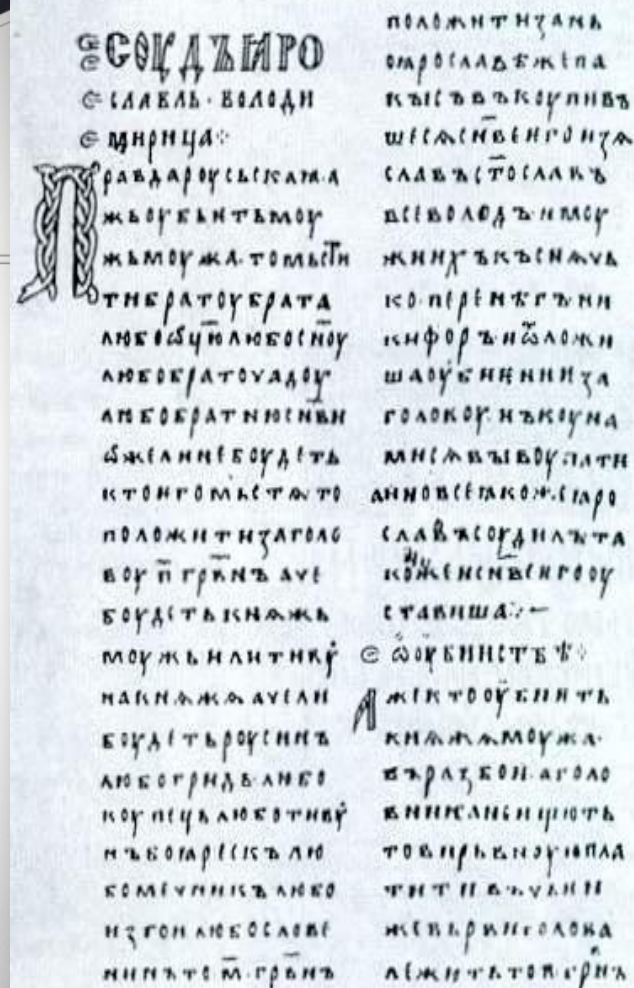 СОУДЪ ꙖРО
СЛАВЛЬ · ВОЛОДИ
МИРИЦА ⁘
ПРАВДА РОУСЬСКАꙖ · А
ЖЬ ОУБЬИТЬ МОУ
ЖЬ МОУЖА · ТО МЬСТИ
ТИ БРАТОУ БРАТА
ЛЮБО ѾЦЮ ЛЮБО СН҃ОУ
ЛЮБО БРАТОУЧАДОУ
ЛЮБО БРАТНЮ СН҃ВИ
ѾЖЕ ЛИ НЕ БОУДЕТЬ
КТО ИГО МЬСТѦ ТО
ПОЛОЖИТИ ЗА ГОЛО
ВОУ П҃ ГРВ҃НЪ АЧЕ
БОУДЕТЬ КНѦЖЬ
МОУЖЬ ИЛИ ТИВОУ
НА КНѦЖѦ АЧЕ ЛИ
БОУДЕТЬ РОУСИНЪ
ЛЮБО ГРИДЬ ЛЮБО
КОУПЕЦЬ ЛЮБО ТИВОУ
НЪ БОꙖРЕСКЪ ЛЮ
БО МЕЧНИКЪ ЛЮБО
ИЗГОИ ЛЮБО СЛОВЕ
НИНЪ ТО М҃ · ГРВ҃НЪ
ПОЛОЖИТИ ЗА НЬ
ПО ꙖРОСЛАВѢ ЖЕ ПА
КЫ СЪВЪКОУПИВЪ
ШЕСѦ СН҃ВЕ ИГО ИЗѦ
СЛАВЪ СТ҃ОСЛАВЪ
ВСЕВОЛОДЪ И МОУ
ЖИ ИХЪ КЪСНѦЧЬ
КО · ПЕРЕНѢГЪ НИ
КИФОРЪ И ѾЛОЖИ
ША ОУБИЕНИИ ЗА
ГОЛОВОУ · НЪ КОУНА
МИ СѦ ВЫКОУПАТИ
А ИНО ВСЕ ꙖКОЖЕ ꙖРО
СЛАВЪ СОУДИЛЪ ТА
КОЖЕ И СН҃ВЕ ИГО ОУ
СТАВИША ⁘ —
Ѡ ОУБИИСТВѢ ⁘
АЖЕ КТО ОУБИИТЬ
КНѦЖѦ МОУЖА ·
ВЪ РАЗБОИ · А ГОЛО
ВНИКА НЕ ИЩЮТЬ
ТО ВИРЬВНОУЮ ПЛА
ТИТИ ВЪ ЧЬИ
ЖЕ ВЬРВИ ГОЛОВА
ЛЕЖИТЬ ТО П҃ ГРВ҃НЪ